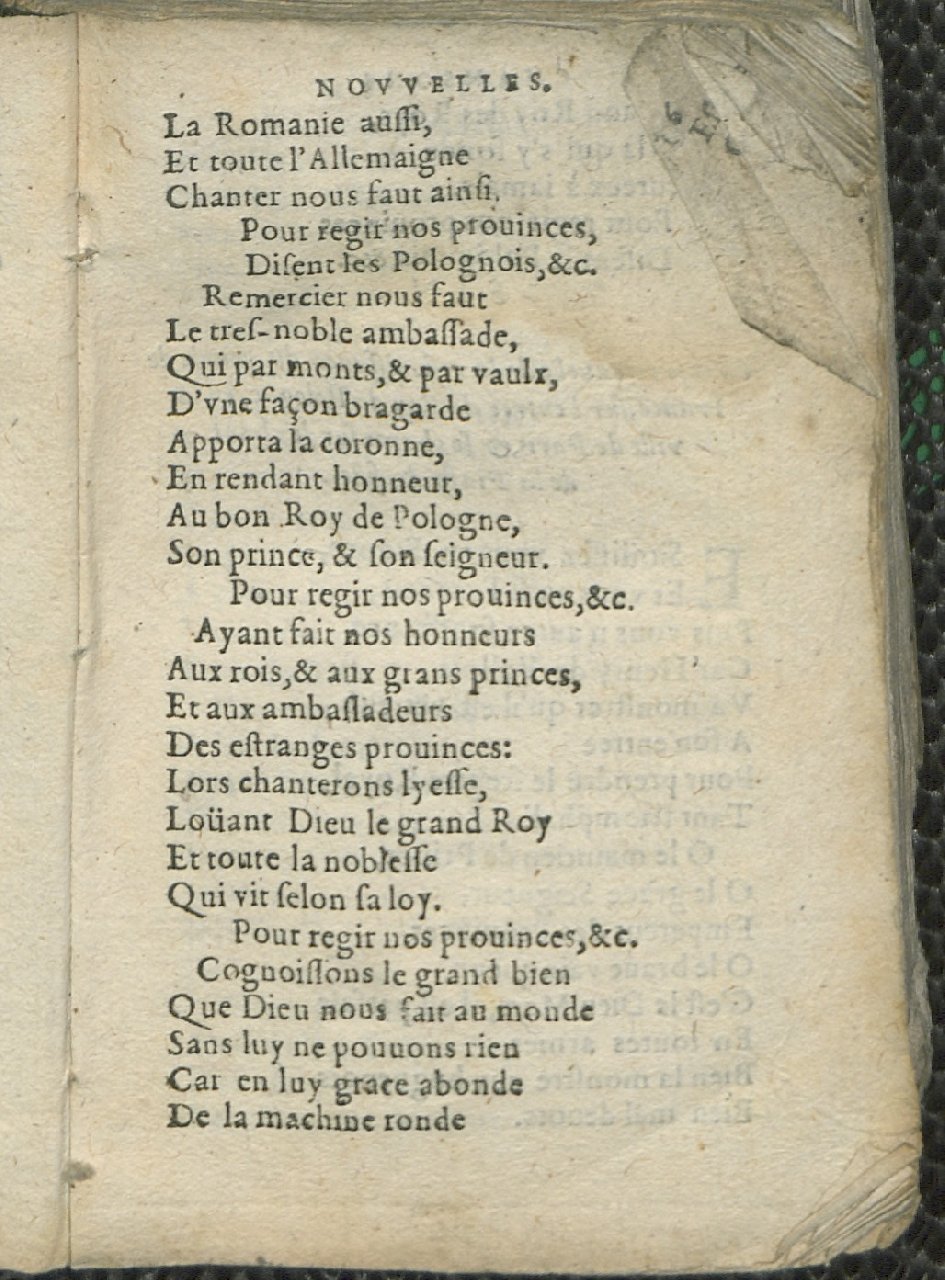 NOVVELLES.
La Romanie auſſi,
Et toute l'Allemaigne
Chanter nous faut ainſi,
Pour regir nos prouinces,
Diſent les Polognois,&c.
Remercier nous faut
Le treſ-noble ambaſſade,
Qui par monts,& par vaulx,
D'vne façon bragarde
Apporta la coronne,
En rendant honneur,
Au bon Roy de Pologne,
Son prince, & ſon ſeigneur.
Pour regir nos prouinces,&c.
Ayant fait nos honneurs
Aux rois,& aux grans princes,
Et aux ambaſſadeurs
Des eſtranges prouinces:
Lors chanterons lyeſſe,
Loüant Dieu le grand Roy
Et toute la nobleſſe
Qui vit ſelon ſa loy.
Pour regir nos prouinces,&c.
Cognoiſſons le grand bien
Que Dieu nous fait au monde
Sans luy ne pouuons rien
Car en luy grace abonde
De la machine ronde